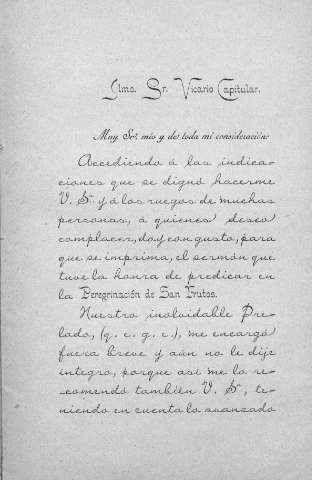 Ilmo. Sr. Vicario Capitular.
Muy Sr. mío y de toda mi consideración:
Accediendo á las indica-
ciones que se dignó hacerme
V. S. y á los ruegos de muchas
personas, á quienes deseo
complacer, doy con gusto, para
que se imprima, el sermón que
tuve la honra de predicar en
la Peregrinación de San Frutos.
Nuestro inolvidable Pre-
lado, (q. e. g. e.), me encargó
fuera breve y aún no le dije
íntegro, porque así me lo re-
comendó también V. S., te-
niendo en cuenta lo avanzado